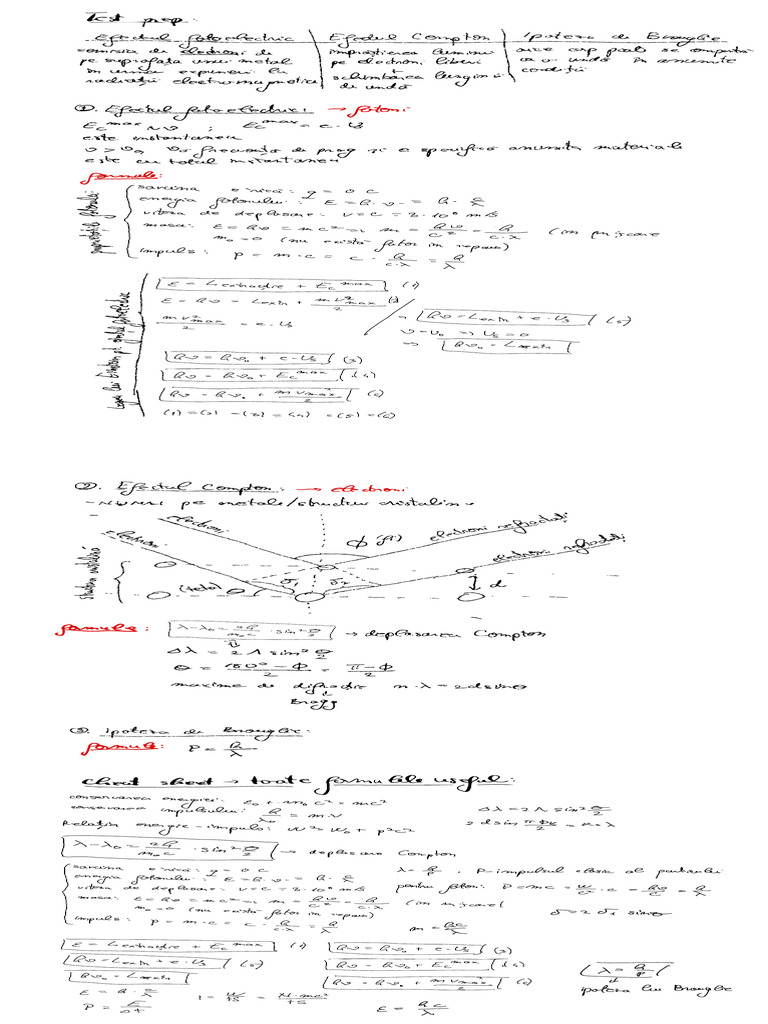 Test prep:
Efectul fotoelectric
emisia de electroni de
pe suprafața unui metal
în urma expunerii la
radiații electromagnetice
Efectul Compton
împrăștierea luminii
pe electroni liberi
schimbarea lungimii
de undă
Ipoteza de Brouglie
orice corp poate se comporta
ca o undă în anumite
condiții
①. Efectul fotoelectric: → fotoni
Ec max ~ν ; Ec max = e · Us
este instantaneu
ν > ν0 ν0 frecvența de prag și e specifică anumite materiale
este cu totul instantaneu
formule:
proprietățile fotonului:
sarcina e nică: q = 0 C
energia fotonului: E = h · ν = h · c/λ
viteza de deplasare: v = c = 3 · 10⁸ m/s
masa: E = hν = mc² => m = hν/c² = h/c·λ (în mișcare
m0 = 0 (nu există foton în repaus)
impuls: p = m · c = c · h/c·λ = h/λ
E = Lextracție + Ec max (1)
E = hν = Lextr + mv²max/2 (2)
mv²max/2 = e · Us
→ hν = Lextr + e · Us (5)
ν = ν0 => Us = 0
=> hν0 = Lextr
hν = hν0 + e · Us (3)
hν = hν0 + Ec max (4)
hν = hν0 + mv²max/2 (6)
(1) = (2) = (3) = (4) = (5) = (6)
②. Efectul Compton: → electroni
pe metale/structuri cristaline
electroni
electroni
Φ (fi)
electroni refractați
electroni refractați
(teta)
σ1
σ2
d
formule: λ-λ0 = 2h/m0c · sin² θ/2 → deplasarea Compton
Δλ = 2Λ sin² θ/2
θ = 180° - Φ/2 = π-Φ/2
maxime de difracție n · λ = 2d sinθ
Bragg
③. Ipoteza de Brouglie:
formule: P = h/λ
Cheat sheet → toate formulele useful:
conservarea energiei: E0 + m0c² = mc²
conservarea impulsului: h/λ0 = m·v
Relația energie-impuls: W² = W0 + p²c²
Δλ = 2Λ sin² θ/2
λ-λ0 = 2h/m0c · sin² θ/2 → deplasare Compton
sarcina e nică: q = 0 C
energia fotonului: E = h · ν = h · c/λ
viteza de deplasare: v = c = 3 · 10⁸ m/s
masa: E = hν = mc² => m = hν/c² = h/c·λ (în mișcare
m0 = 0 (nu există foton în repaus)
impuls: p = m · c = c · h/c·λ = h/λ
λ = h/p , P-impulsul al particulei
pentru foton: P = mc = W/c² · c = hν/c = h/λ
σ = 2σ1 sinθ
E = Lextracție + Ec max (1)
hν = Lextr + e · Us (5)
hν0 = Lextr
hν = hν0 + e · Us (3)
hν = hν0 + Ec max (4)
hν = hν0 + mv²max/2 (6)
λ = h/p
ipoteza lui Brouglie
E = h · c/λ
P = E/Δt
E = hc/λ